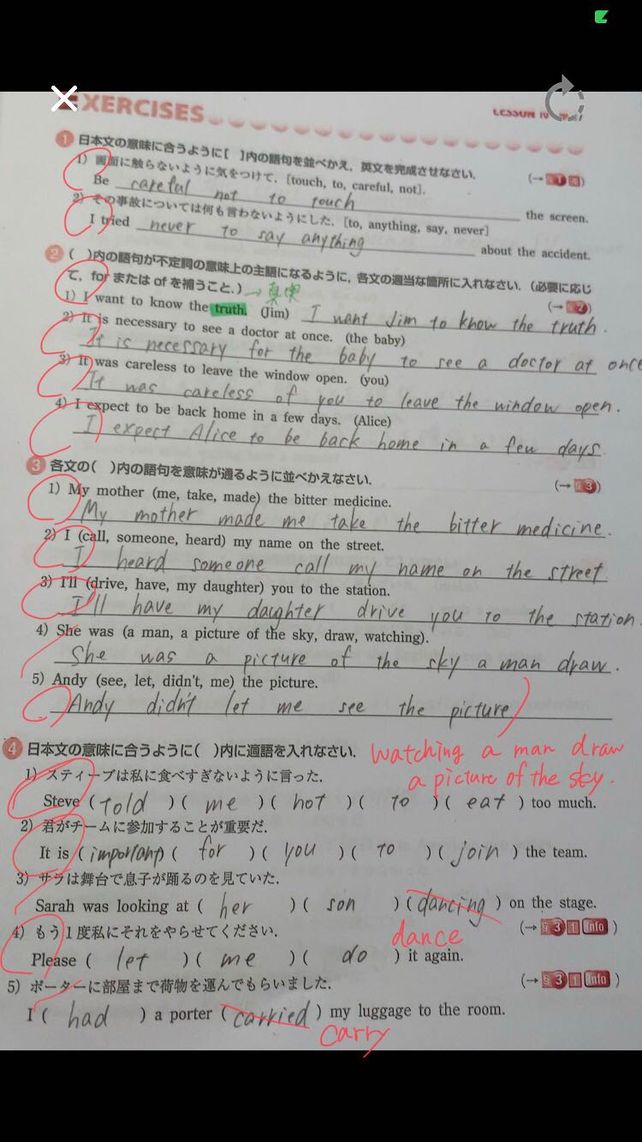 EXERCISES
LESSON 10
1 日本文の意味に合うように[ ]内の語句を並べかえ，英文を完成させなさい．
1) 画面に触らないように気をつけて．[touch, to, careful, not].
Be careful not to touch the screen.
2) その事故については何も言わないようにした．[to, anything, say, never]
I tried never to say anything about the accident.
2 ( )内の語句が不定詞の意味上の主語になるように，各文の適当な箇所に入れなさい．(必要に応じ
て，for または of を補うこと．)
1) I want to know the truth. (Jim) I want Jim to know the truth.
2) It is necessary to see a doctor at once. (the baby)
It is necessary for the baby to see a doctor at once
3) It was careless to leave the window open. (you)
It was careless of you to leave the window open.
4) I expect to be back home in a few days. (Alice)
I expect Alice to be back home in a few days.
3 各文の( )内の語句を意味が通るように並べかえなさい．
(→ 3)
1) My mother (me, take, made) the bitter medicine.
My mother made me take the bitter medicine.
2) I (call, someone, heard) my name on the street.
I heard someone call my name on the street
3) I'll (drive, have, my daughter) you to the station.
I'll have my daughter drive you to the station.
4) She was (a man, a picture of the sky, draw, watching).
She was a picture of the sky a man draw.
5) Andy (see, let, didn't, me) the picture.
Andy didn't let me see the picture
watching a man draw
a picture of the sky.
4 日本文の意味に合うように( )内に適語を入れなさい．
1) スティーブは私に食べすぎないように言った．
Steve (told)(me)(not)(to)(eat) too much.
2) 君がチームに参加することが重要だ．
It is (important)(for)(you)(to)(join) the team.
3) サラは舞台で息子が踊るのを見ていた．
Sarah was looking at (her)(son)(dancing) on the stage.
dance
(→ 3 1 Info)
4) もう1度私にそれをやらせてください．
Please (let)(me)(do) it again.
(→ 3 1 Info)
5) ポーターに部屋まで荷物を運んでもらいました．
I (had) a porter (carried) my luggage to the room.
carry